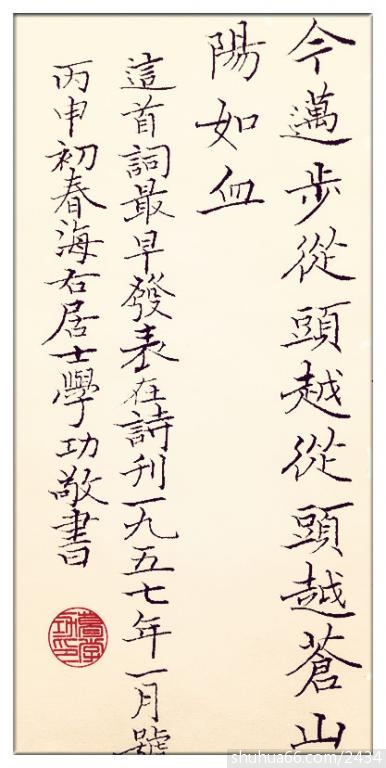 今邁步從頭越從頭越蒼山
陽如血
這首詞最早發表在詩刊一九五七年一月號
丙申初春海右居士學功敬書
shuhua66.com/2434